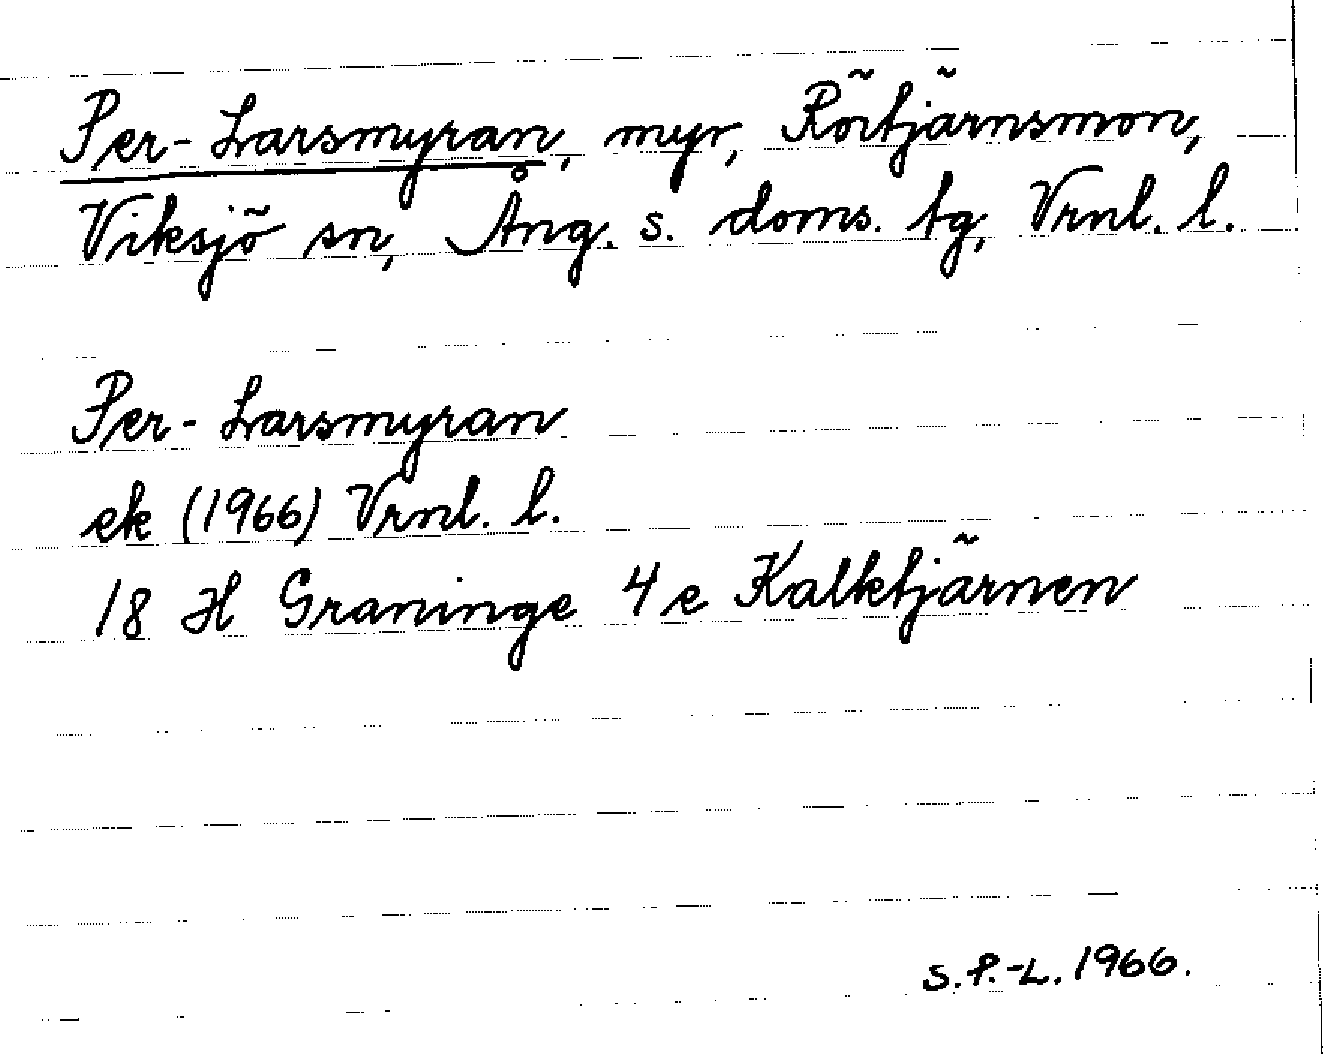 Per-Larsmyran, myr, Rötjärnsmon,
Viksjö sn, Ång. s. doms. tg, Vrnl. l.
Per-Larsmyran
ek (1966) Vrnl. l.
18 H Graninge 4 e Kalktjärnen
S.P.-L. 1966.